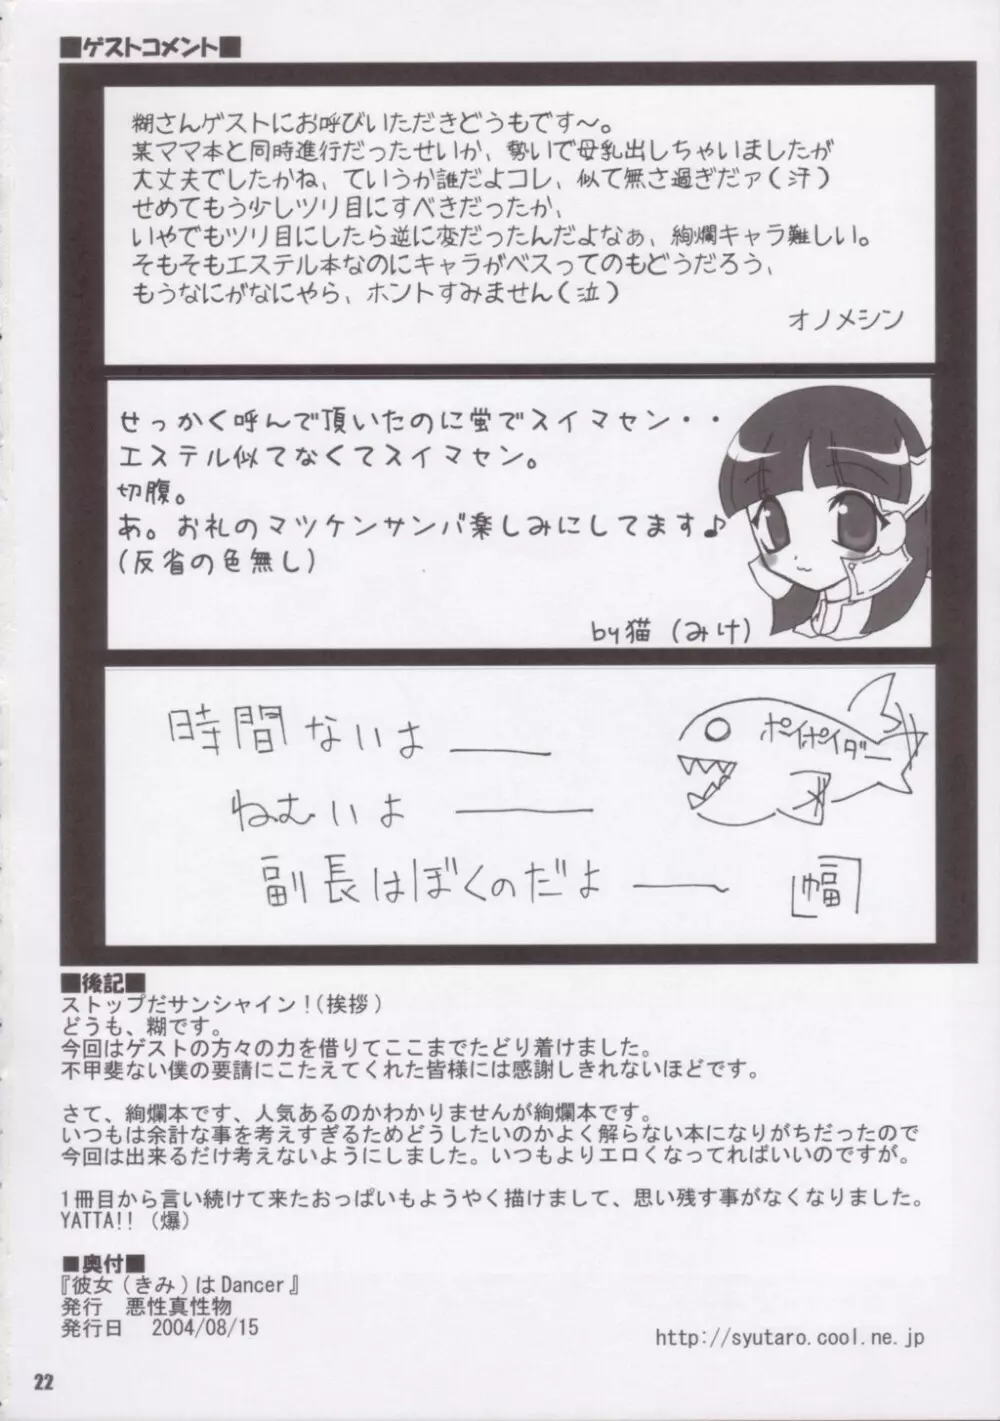 ■ゲストコメント■
糊さんゲストにお呼びいただきどうもです～。
某ママ本と同時進行だったせいか、勢いで母乳出しちゃいましたが
大丈夫でしたかね、ていうか誰だよコレ、似て無さ過ぎだァ(汗)
せめてもう少しツリ目にすべきだったか、
いやでもツリ目にしたら逆に変だったんだよなぁ、絢爛キャラ難しい。
そもそもエステル本なのにキャラがベスってのもどうだろう、
もうなにがなにやら、ホントすみません(泣)
オノメシン
せっかく呼んで頂いたのに蛍でスイマセン・・
エステル似てなくてスイマセン。
切腹。
あ。お礼のマツケンサンバ楽しみにしてます♪
(反省の色無し)
by猫 (みけ)
時間ないよ――
ねむいよ――
副長はぼくのだよ――
ポイポイダー
■後記■
ストップだサンシャイン!(挨拶)
どうも、糊です。
今回はゲストの方々の力を借りてここまでたどり着けました。
不甲斐ない僕の要請にこたえてくれた皆様には感謝しきれないほどです。
さて、絢爛本です、人気あるのかわかりませんが絢爛本です。
いつもは余計な事を考えすぎるためどうしたいのかよく解らない本になりがちだったので
今回は出来るだけ考えないようにしました。いつもよりエロくなってればいいのですが。
1冊目から言い続けて来たおっぱいもようやく描けまして、思い残す事がなくなりました。
YATTA!! (爆)
■奥付■
『彼女(きみ)はDancer』
発行 悪性真性物
発行日 2004/08/15
http://syutaro.cool.ne.jp
22